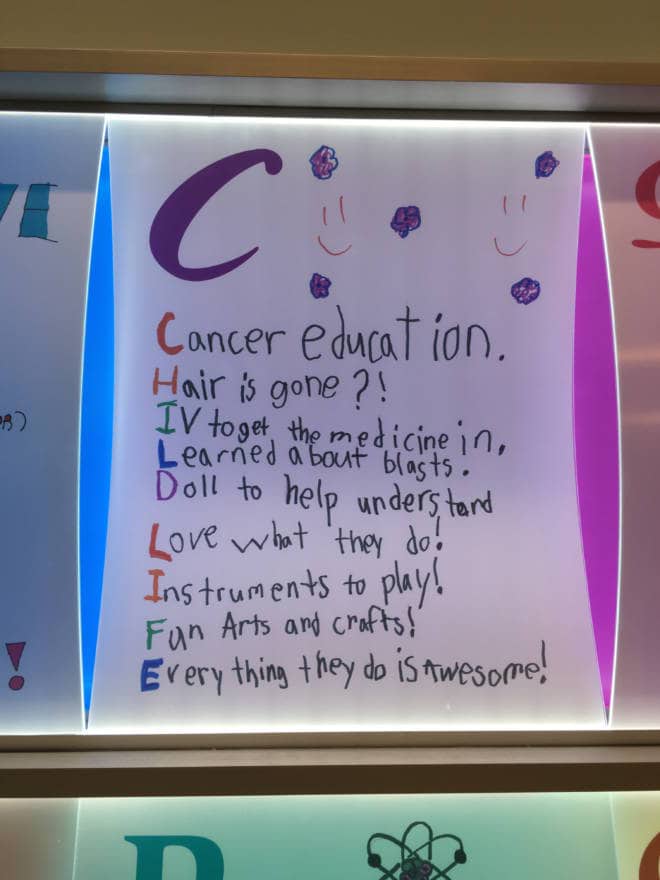 C
Cancer education.
Hair is gone?!
IV to get the medicine in.
Learned about blasts.
Doll to help understand
Love what they do!
Instruments to play!
Fun Arts and crafts!
Everything they do is Awesome!
!